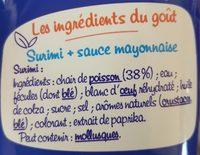 Les ingrédients du goût
Surimi + sauce mayonnaise
Surimi :
Ingrédients : chair de poisson (38%) ; eau ;
fécules (dont blé) ; blanc d'œuf réhydraté ; huile
de colza ; sucre ; sel ; arômes naturels (crustacés,
blé) ; colorant : extrait de paprika.
Peut contenir : mollusques.